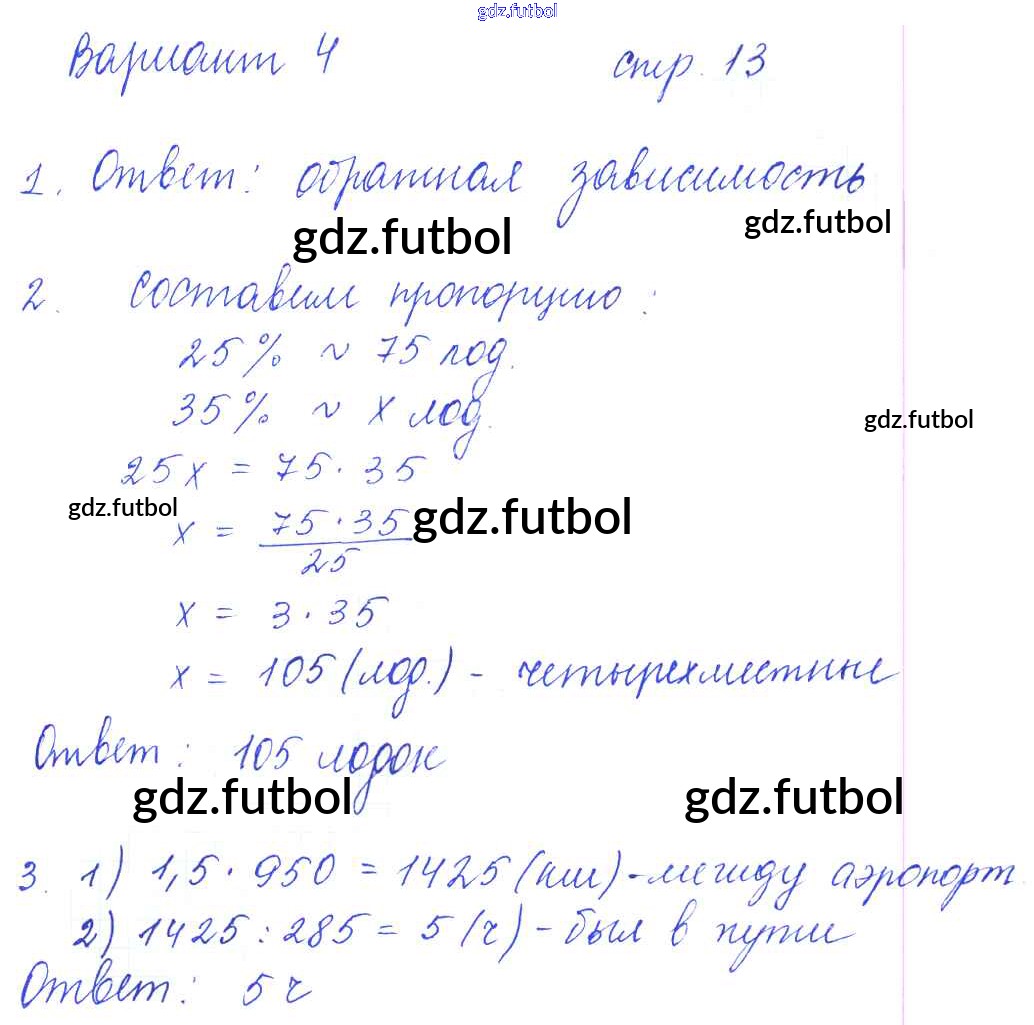 gdz.futbol
Вариант 4 стр. 13
1. Ответ: обратная зависимость
gdz.futbol gdz.futbol
2. Составим пропорцию:
25% ~ 75 лод.
35% ~ x лод.
gdz.futbol
25x = 75 · 35
gdz.futbol
x = 75 · 35 / 25
gdz.futbol
x = 3 · 35
x = 105 (лод.) - четырехместные
Ответ: 105 лодок
gdz.futbol gdz.futbol
3. 1) 1,5 · 950 = 1425 (км) - между аэропорт.
2) 1425 : 285 = 5 (ч) - был в пути
Ответ: 5 ч